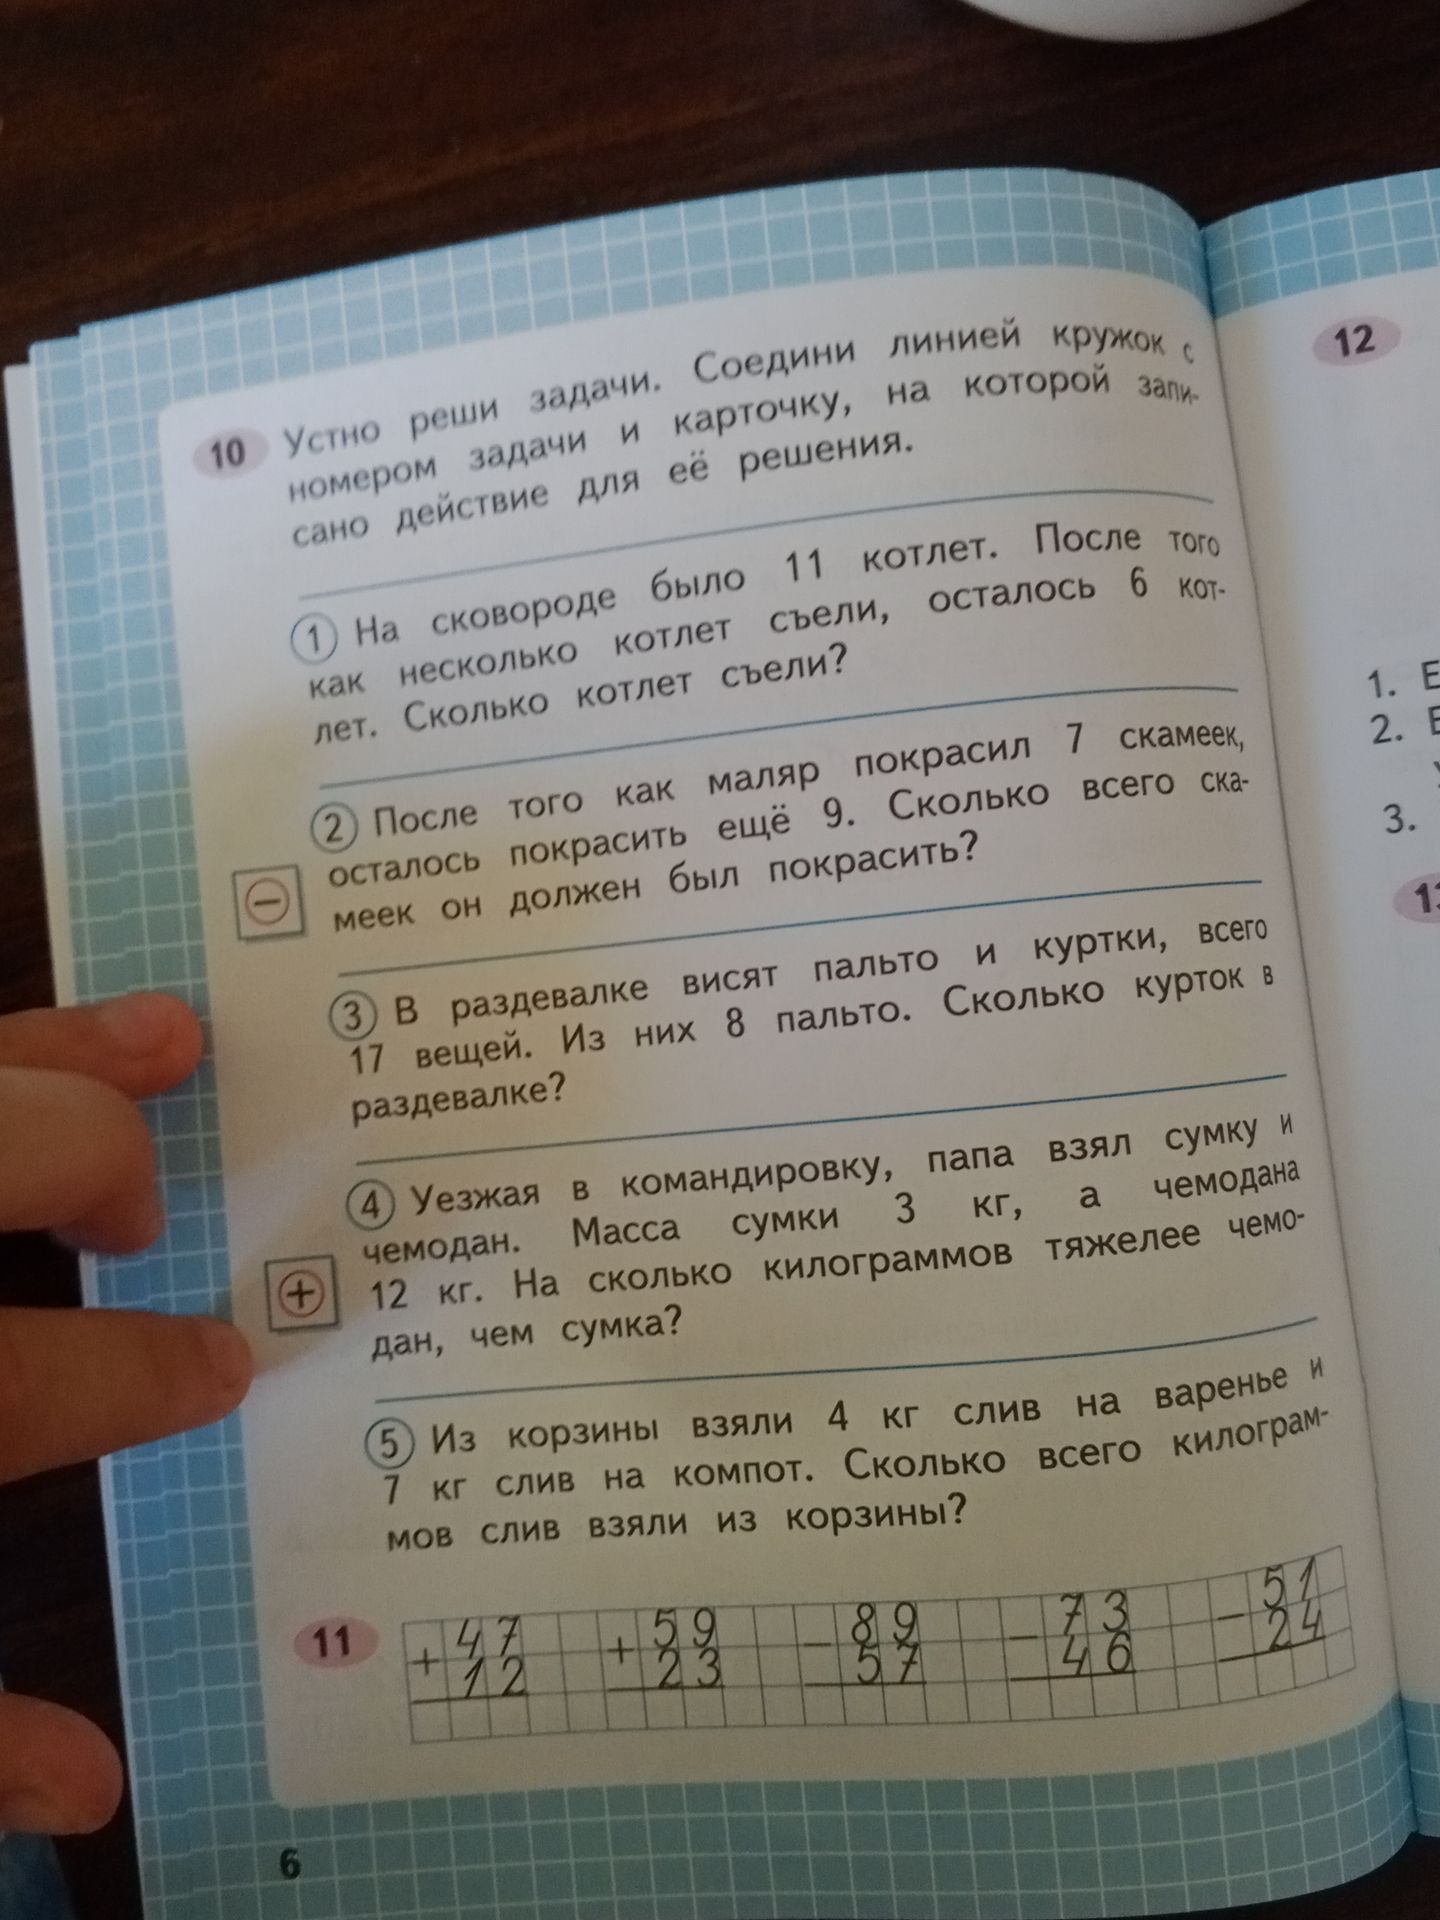 10 Устно реши задачи. Соедини линией кружок с
номером задачи и карточку, на которой запи-
сано действие для её решения.
1 На сковороде было 11 котлет. После того
как несколько котлет съели, осталось 6 кот-
лет. Сколько котлет съели?
2 После того как маляр покрасил 7 скамеек,
осталось покрасить ещё 9. Сколько всего ска-
меек он должен был покрасить?
−
3 В раздевалке висят пальто и куртки, всего
17 вещей. Из них 8 пальто. Сколько курток в
раздевалке?
4 Уезжая в командировку, папа взял сумку и
чемодан. Масса сумки 3 кг, а чемодана
12 кг. На сколько килограммов тяжелее чемо-
дан, чем сумка?
+
5 Из корзины взяли 4 кг слив на варенье и
7 кг слив на компот. Сколько всего килограм-
мов слив взяли из корзины?
11 + 47 + 59 − 89 − 73 − 51
12 23 57 46 24
6
12
1. Е
2.
3.